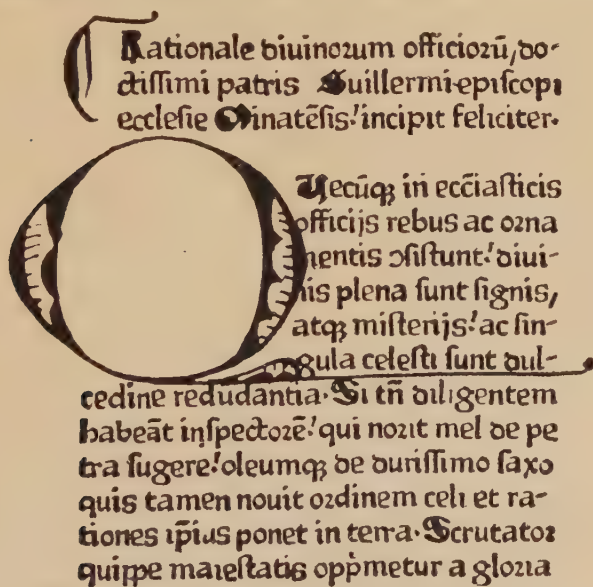 Rationale diuinorum officiorū, do-
ctissimi patris Guillermi episcopi
ecclesie Minatēsis: incipit feliciter.
QVecūqꝫ in eccīasticis
officijs rebus ac orna
mentis ↄsistunt: diui-
nis plena sunt signis,
atqꝫ misterijs: ac sin-
gula celesti sunt dul-
cedine redudantia. Si tn̄ diligentem
habeāt inspectorē: qui norit mel de pe
tra sugere: oleumqꝫ de durissimo saxo
quis tamen nouit ordinem celi et ra-
tiones ip̄ius ponet in terra. Scrutator
quippe maiestatis opp̄metur a gloria